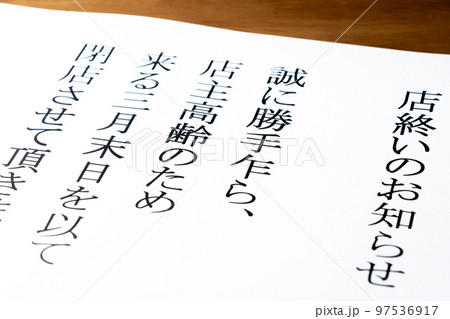 店終いのお知らせ
誠に勝手乍ら、
店主高齢のため
来る三月末日を以て
閉店させて頂き
PIXTA
97536917